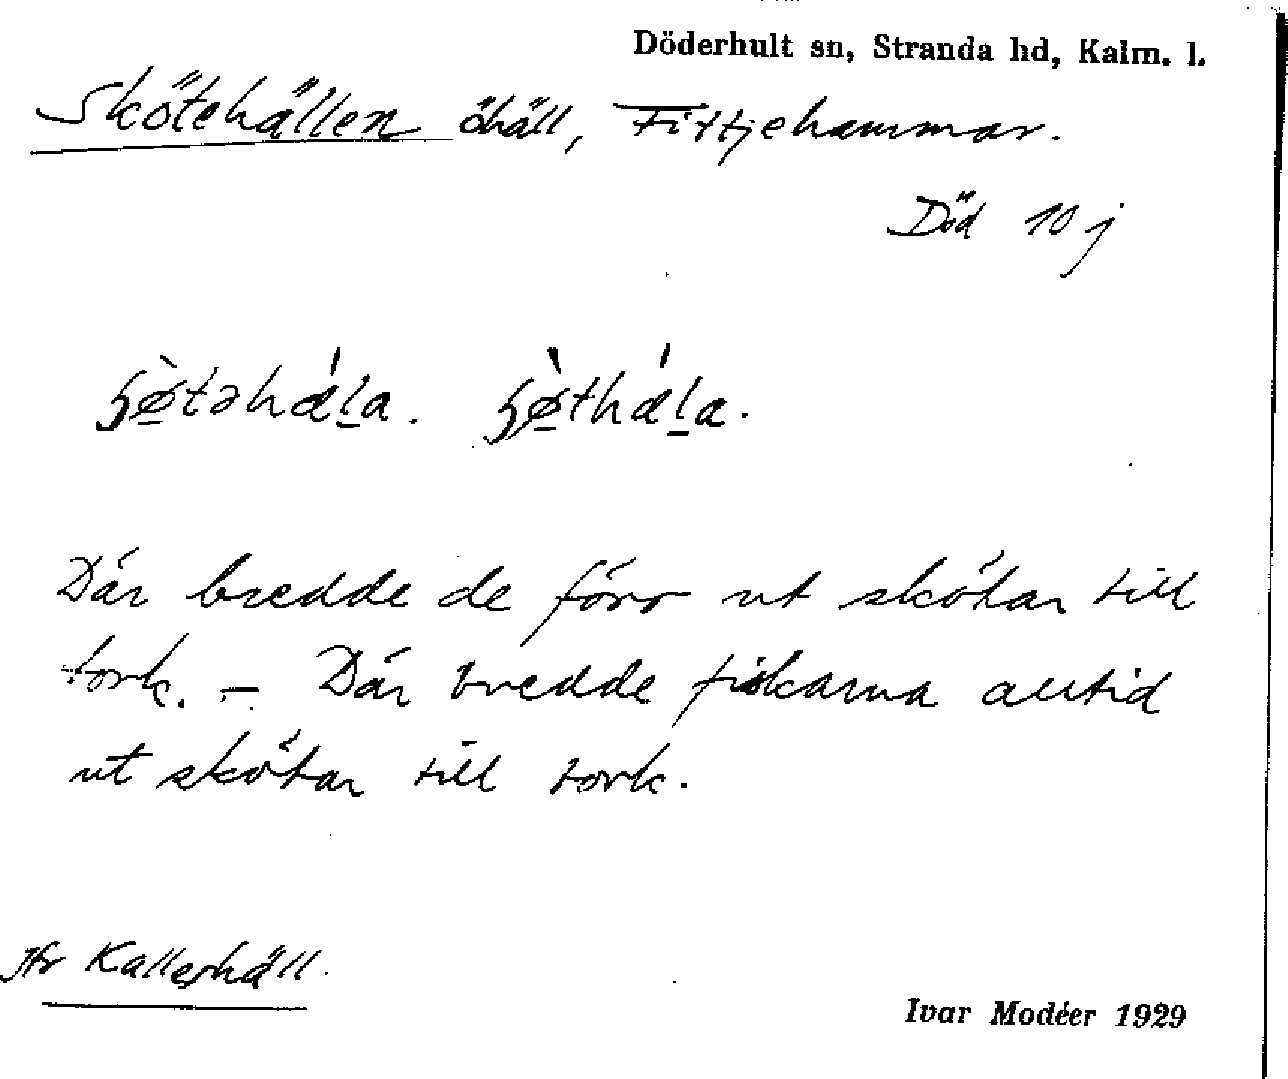 Döderhult sn, Stranda hd, Kalm. l.
Skötehällen öhäll, Fittjehammar.
Död 10 j
Där bredde de förr ut skötar till
tork. – Där bredde fiskarna alltid
ut skötar till tork.
Jfr Kallerhäll.
Ivar Modéer 1929